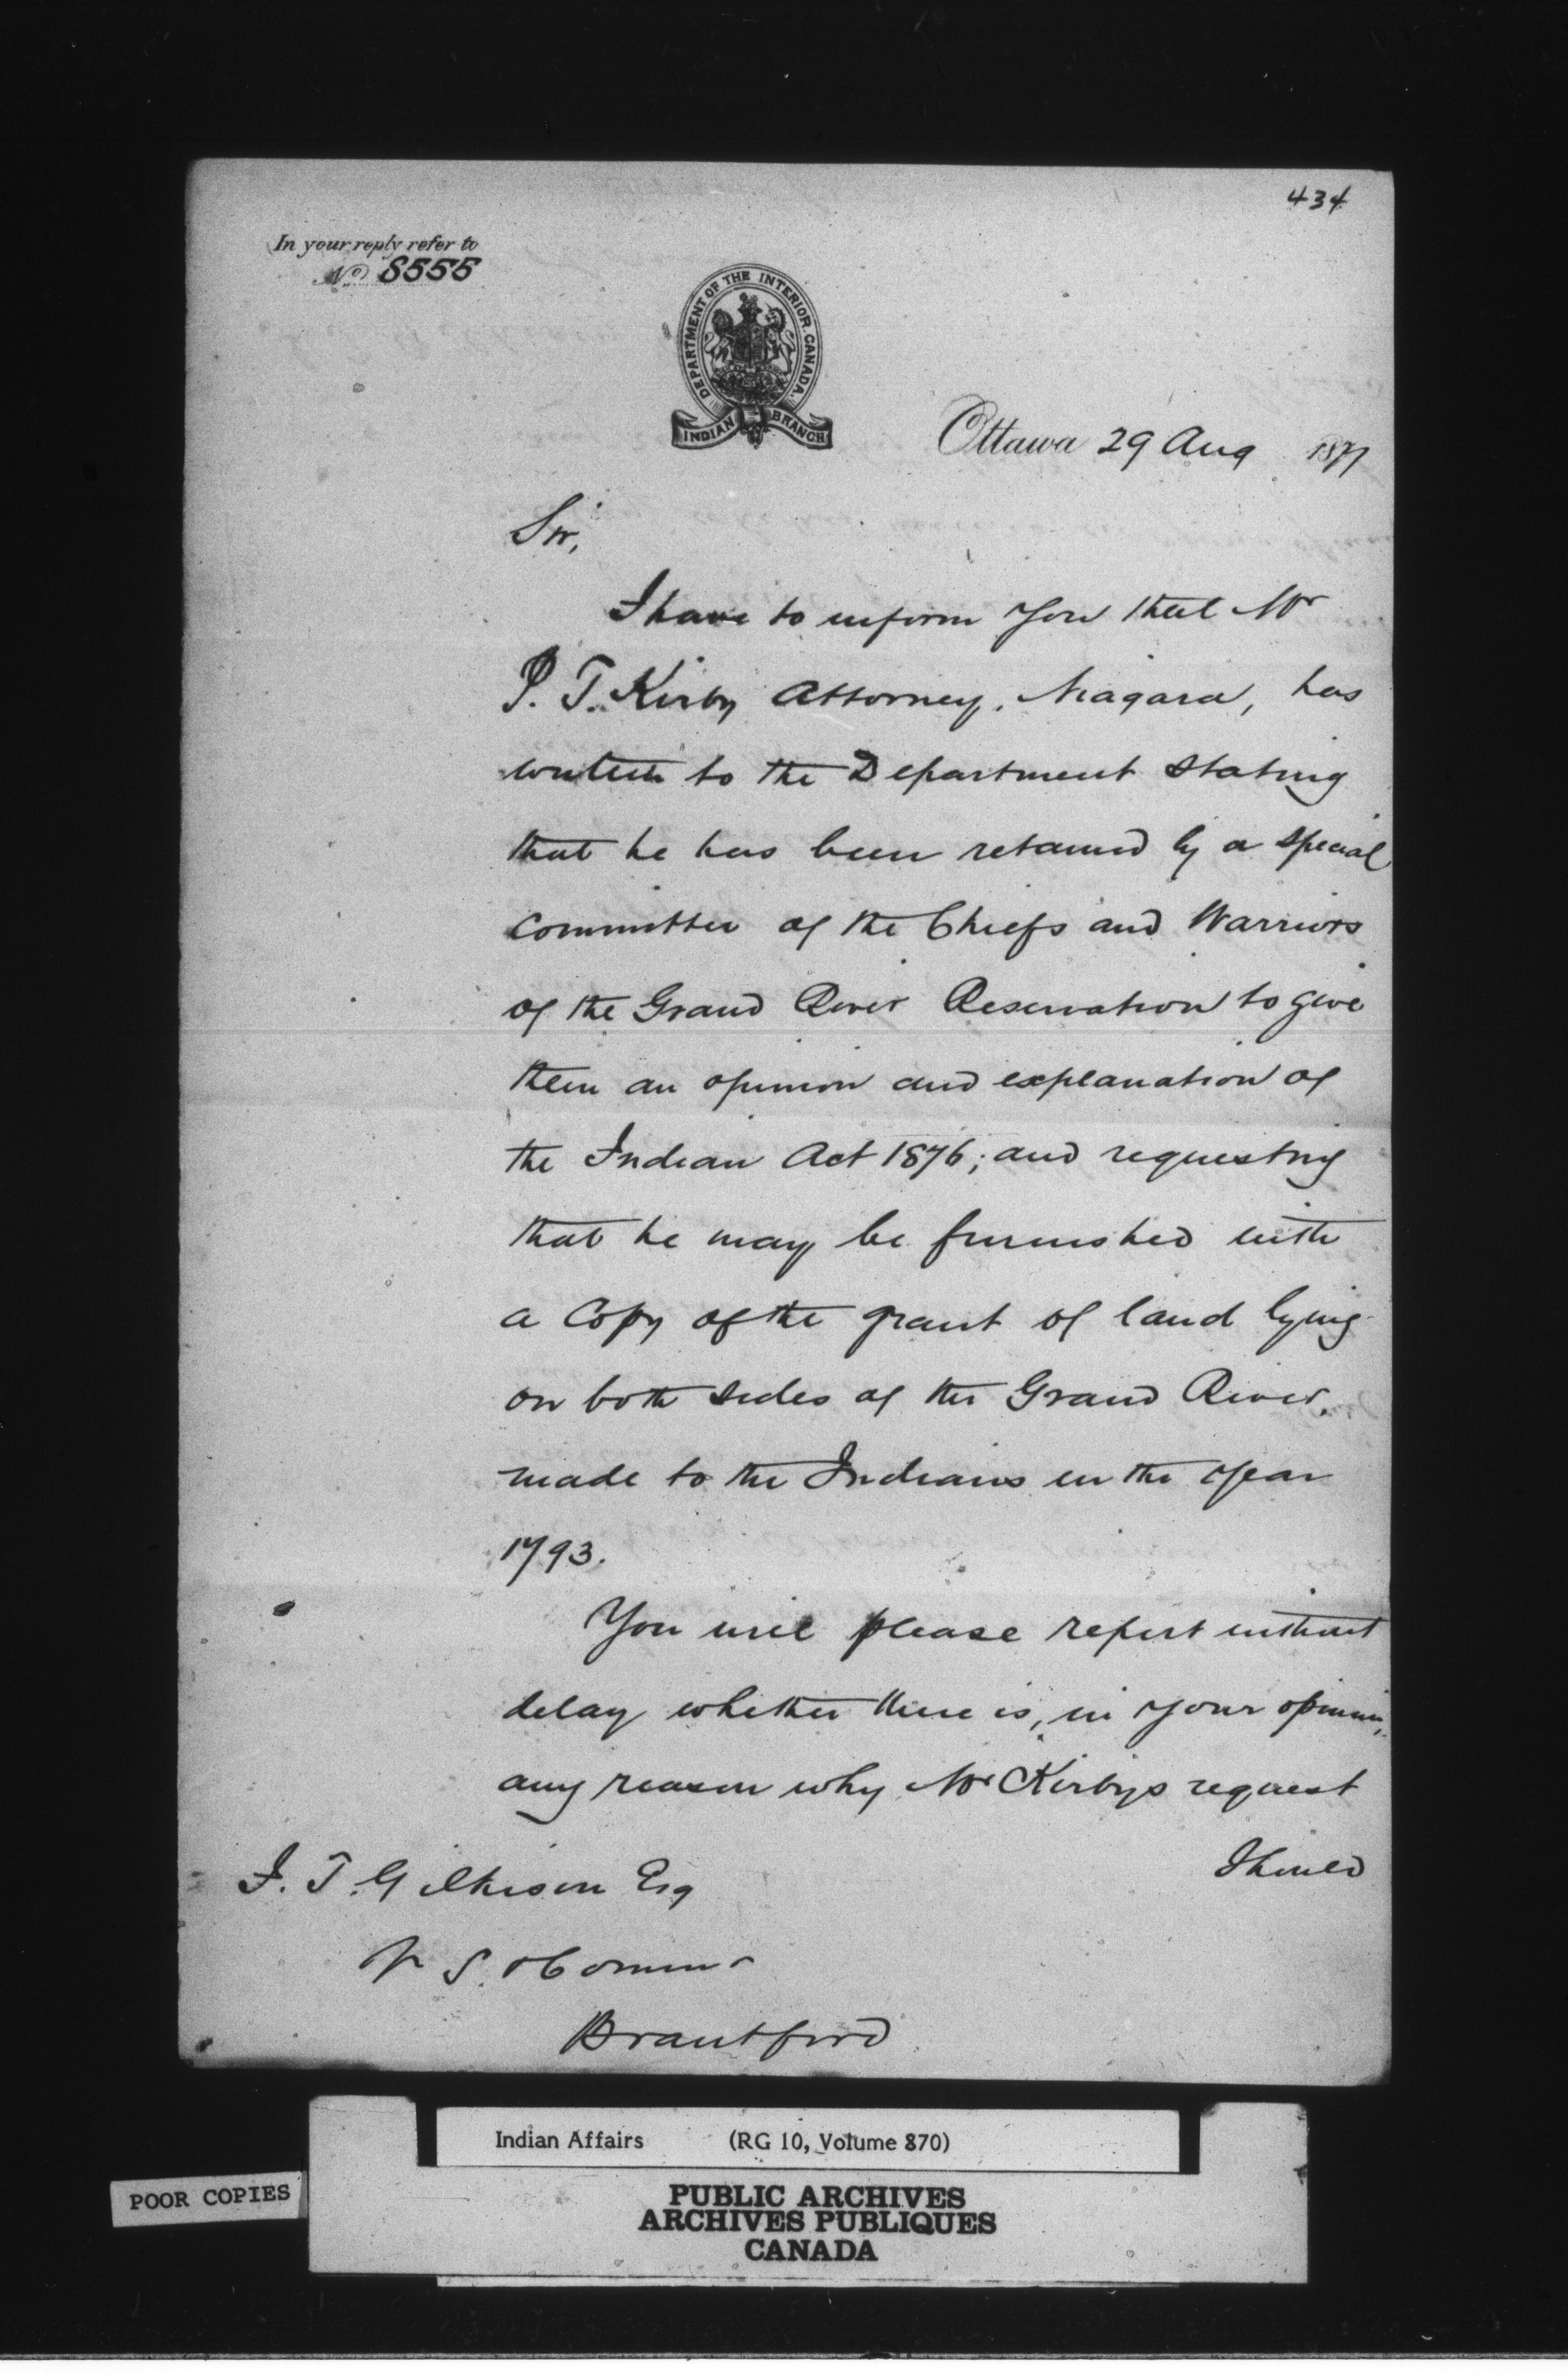 434
In your reply refer to
No 8555
DEPARTMENT OF THE INTERIOR. CANADA.
INDIAN BRANCH
Ottawa 29 Aug 1877
Sir,
I have to inform you that Mr
P. T. Kirby Attorney, Niagara, has
written to the Department stating
that he has been retained by a special
committee of the Chiefs and Warriors
of the Grand River Reservation to give
them an opinion and explanation of
the Indian Act 1876; and requesting
that he may be furnished with
a Copy of the grant of land lying
on both sides of the Grand River,
made to the Indians in the year
1793.
You will please report without
delay whether there is, in your opinion,
any reason why Mr Kirbys request
Should
J. T. Gilkison Esq
V. S. & Commr
Brantford
Indian Affairs (RG 10, Volume 870)
POOR COPIES
PUBLIC ARCHIVES
ARCHIVES PUBLIQUES
CANADA